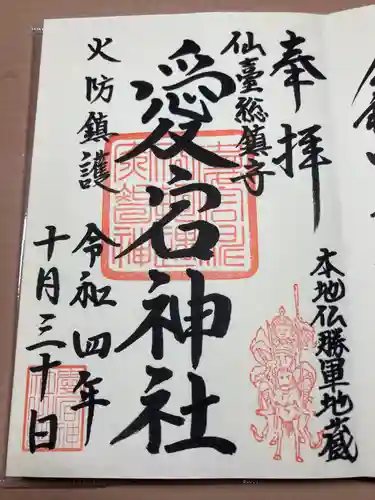 奉拝
本地仏勝軍地蔵
仙臺総鎮守
愛宕神社
火防鎮護
令和四年
十月三十日